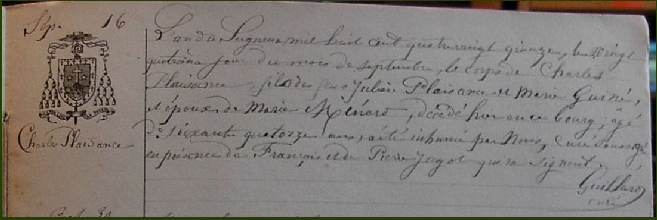 Sép. 16
Charles Plaisance
L'an du Seigneur mil huit cent quatre vingt quinze, le vingt
quatrième jour du mois de septembre, le corps de Charles
Plaisance, fils des feus Julien Plaisance et Marie Guiné,
et époux de Marie Ménard, décédé hier en ce bourg, âgé
de soixante quatorze ans, a été inhumé par Nous, curé soussigné,
en présence de François et de Pierre Jagot qui ne signent.
Guillard
curé